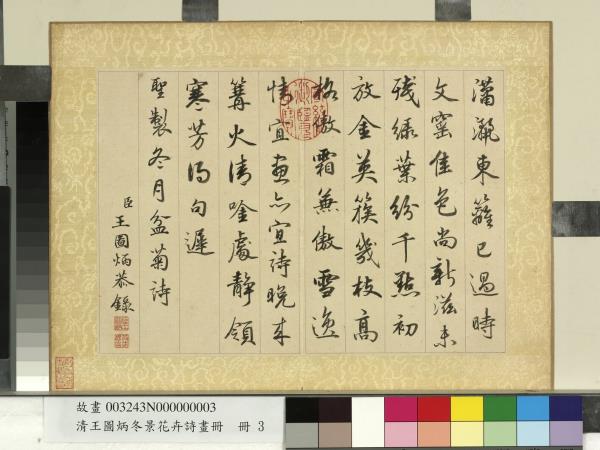 瀟灑東籬已過時
文窯佳色尚新滋未
殘綠葉紛千點初
放金英簇幾枝高
格傲霜兼傲雪逸
情宜畫亦宜詩晚來
篝火清唫處靜領
寒芳得句遲
聖製冬月盆菊詩
臣王圖炳恭錄
故畫 003243N000000003
清王圖炳冬景花卉詩畫冊 冊 3